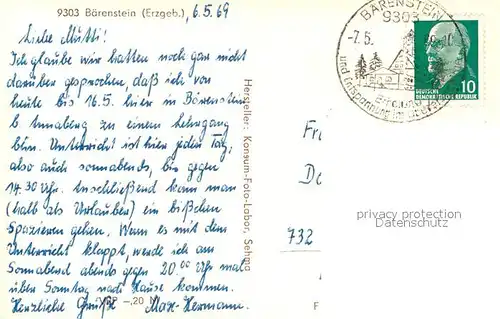 9303 Bärenstein (Erzgeb.), 6.5.69
Liebe Mutti!
Ich glaube wir hatten noch gar nicht
darüber gesprochen, daß ich von
heute bis 16.5. hier in Bärenstein
b Annaberg zu einem Lehrgang
bin. Unterricht ist hier jeden Tag,
also auch sonnabends, bis gegen
14.30 Uhr. Anschließend kann man
(halb als Urlauber) ein bißchen
Spazieren gehen. Wenn es mit dem
Unterricht klappt, werde ich am
Sonnabend abends gegen 20.00 Uhr mal
über Sonntag nach Hause kommen.
Herzliche Grüße Max-Hermann.
VP –,20 M
Hersteller: Konsum-Foto-Labor, Sehma
BÄRENSTEIN
9303
-7.5.
und Entspannung im
DEUTSCHE
DEMOKRATISCHE REPUBLIK
10
Fr
De
privacy protection
Datenschutz
732
F